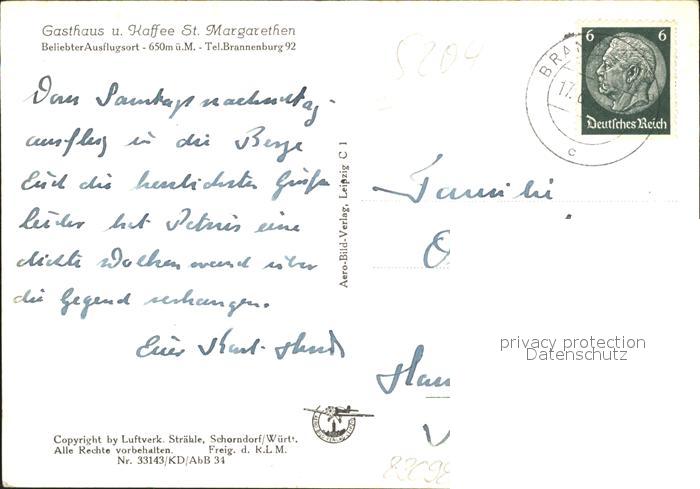 Gasthaus u. Kaffee St. Margarethen
Beliebter Ausflugsort - 650m ü.M. - Tel. Brannenburg 92
5204
6 6
Deutsches Reich
BRAN
17.
c
Vom Samstagnachmittag-
ausflug in die Berge
Euch die herzlichsten Grüße
leider hat Petrus eine
dichte Wolkenwand über
die Gegend verhangen.
Euer Karl
Aero-Bild-Verlag, Leipzig C 1
Familie
O
Han
privacy protection
Datenschutz
Copyright by Luftverk. Strähle, Schorndorf/Württ.
Alle Rechte vorbehalten. Freig. d. R.L.M.
Nr. 33143/KD/AbB 34